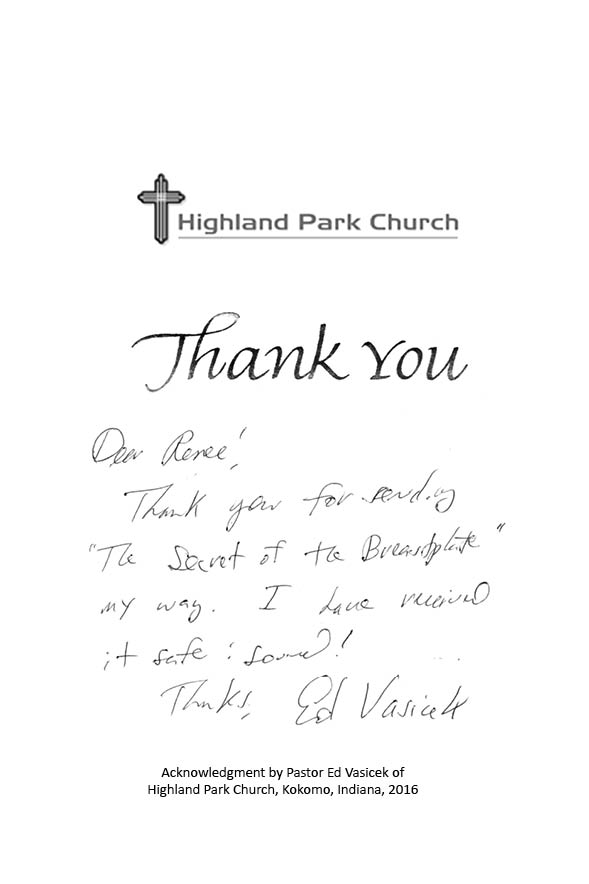 Highland Park Church
Thank You
Dear Renee!
Thank you for sending
"The Secret of the Breastplate"
my way. I have received
it safe & sound!
Thnks, Ed Vasicek
Acknowledgment by Pastor Ed Vasicek of
Highland Park Church, Kokomo, Indiana, 2016